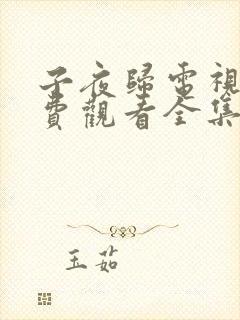 子夜歸電視
費觀看全集
玉茹